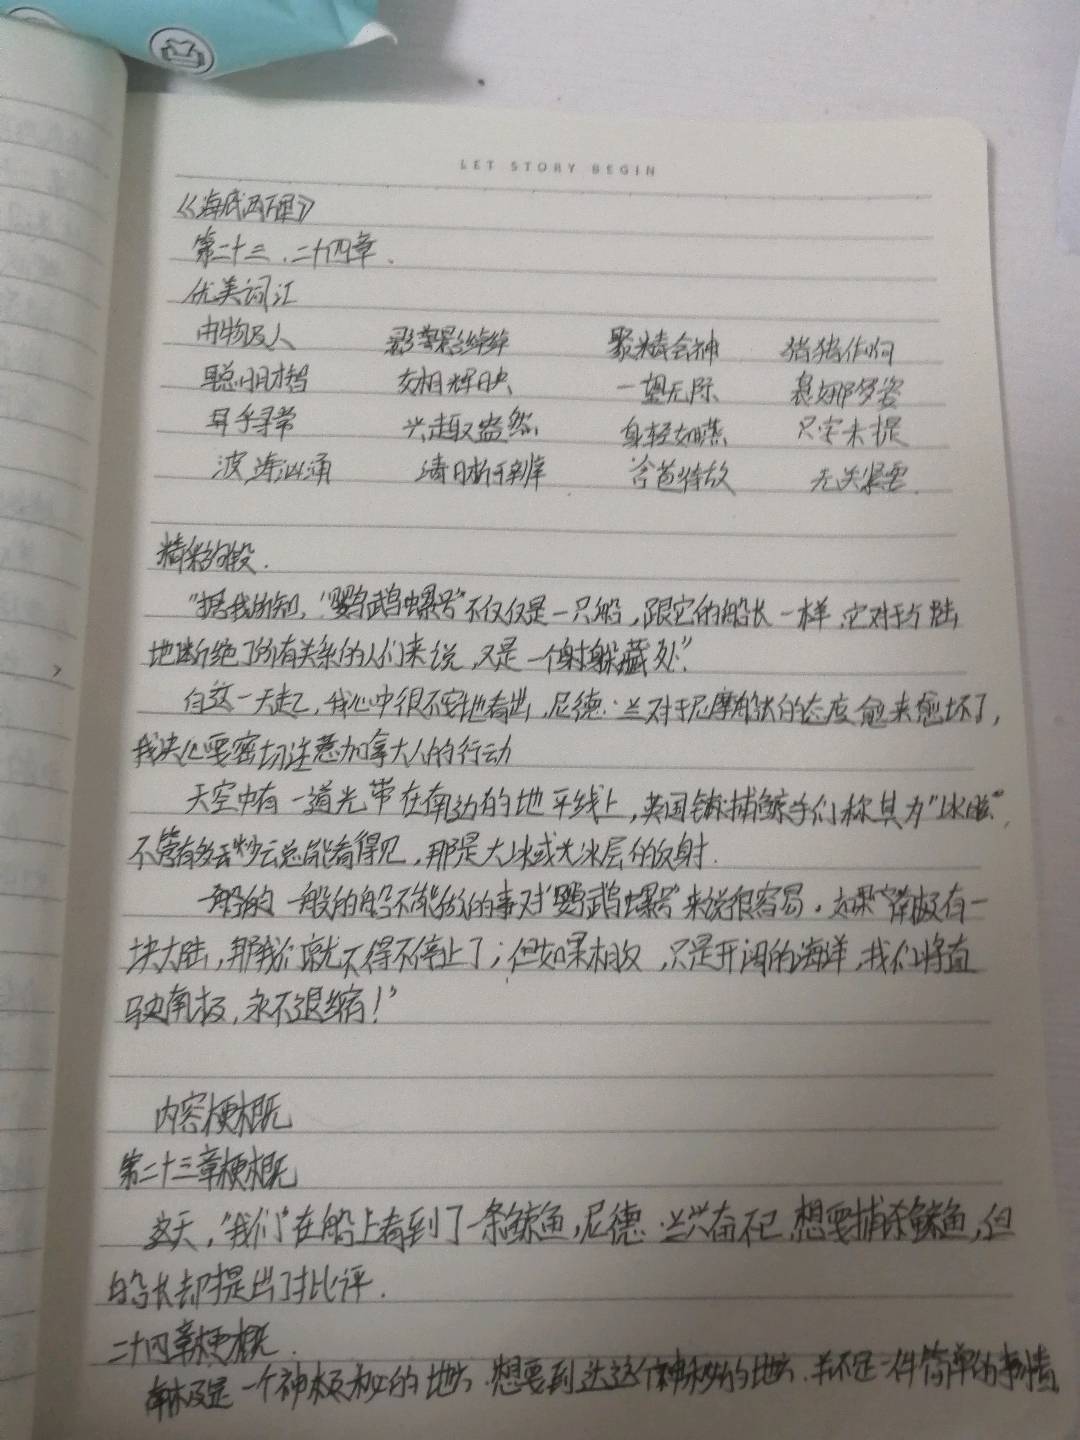 LET STORY BEGIN
《海底两万里》
第二十三、二十四章.
优美词汇
由物及人 影影绰绰 聚精会神 猪猪作呵
聪明才智 交相辉映 一望无际 袅娜多姿
异乎寻常 兴趣盎然 身轻如燕 只字未提
波涛汹涌 清晰可辨 令芭特故 无关紧要.
精彩的段.
"据我所知,"鹦鹉螺号"不仅仅是一只船,跟它的船长一样,它对于与陆
地断绝了所有关系的人们来说,又是一个躲藏处."
自这一天起,我心中很不安地看出,尼德·兰对于尼摩船长的态度愈来愈坏了,
我决心要密切注意加拿大人的行动
天空中有一道光带在南边的地平线上,英国 捕鲸手们称其为"冰映".
不管有多云总能看得见,那是大冰或大冰层的反射.
一般的船不能做的事对"鹦鹉螺号"来说很容易.如果南极有一
块大陆,那我们就不得不停止了;但如果相反,只是开阔的海洋,我们将直
驶南极,永不退缩!"
内容梗概
第二十三章梗概
这天,"我们"在船上看到了一条鲸鱼,尼德·兰兴奋不已,想要捕杀鲸鱼,但
船长却提出了批评.
二十四章梗概.
南极是一个神秘的地方.想要到达这个神秘的地方,并不是一件简单的事情.